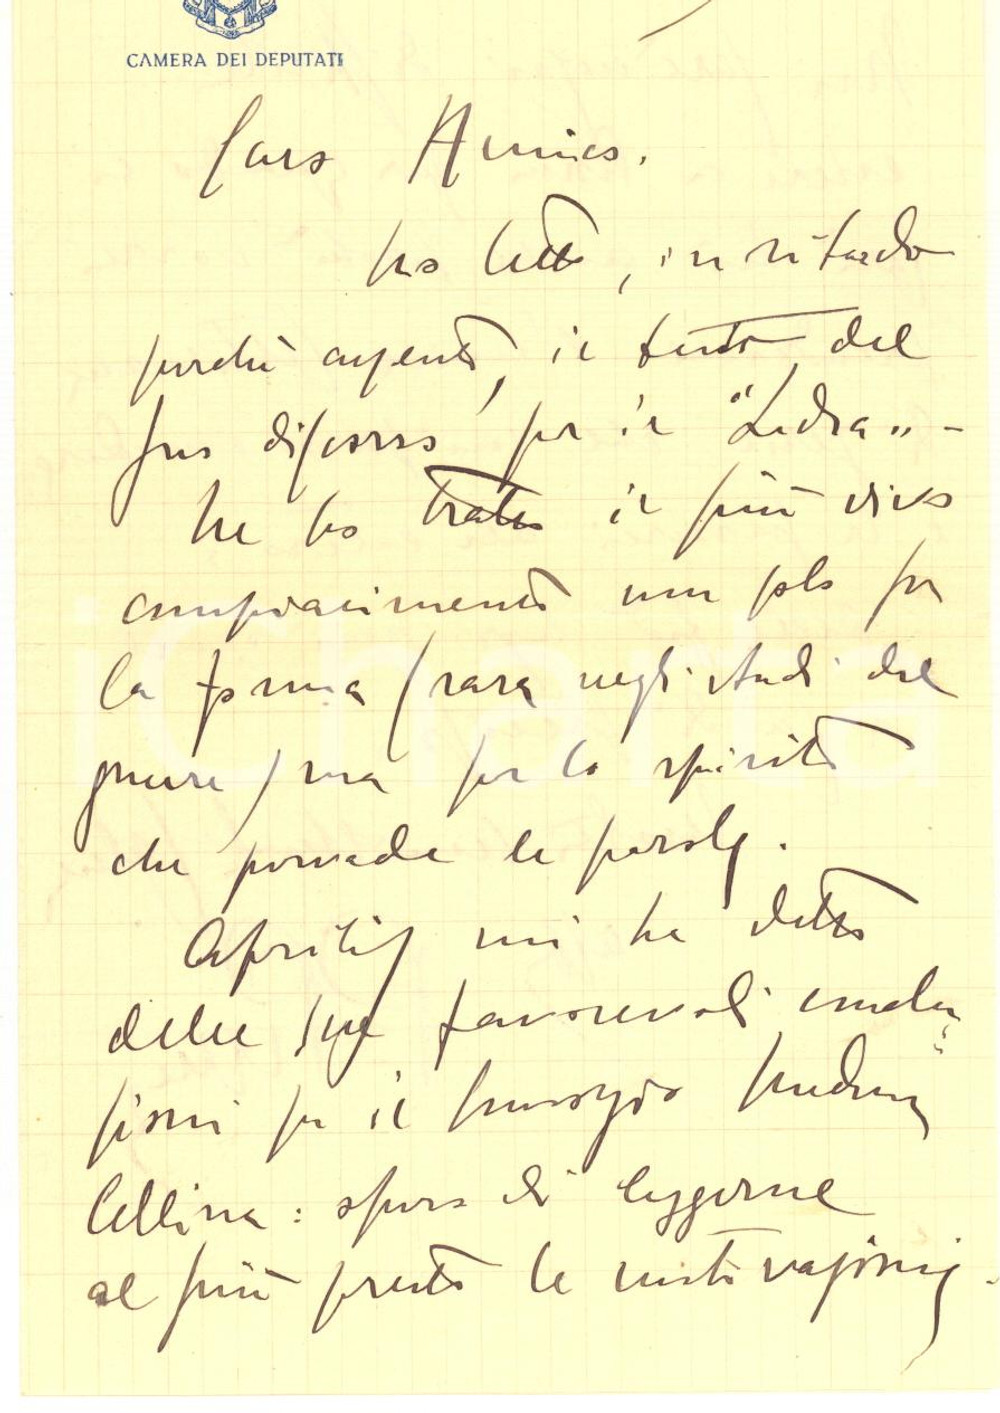 CAMERA DEI DEPUTATI
Caro Amico.
ho letto, in ritardo
perché assente, il testo del
suo discorso per il "Ledra" -
Ne ho tratto il più vivo
compiacimento non solo per
la forma (rara negli studi del
genere) ma per lo spirito
che pervade le parole.
Aprilis mi ha detto
delle sue favorevoli conclu=
sioni per il
Cellina: spero di leggerne
al più presto le motivazioni.